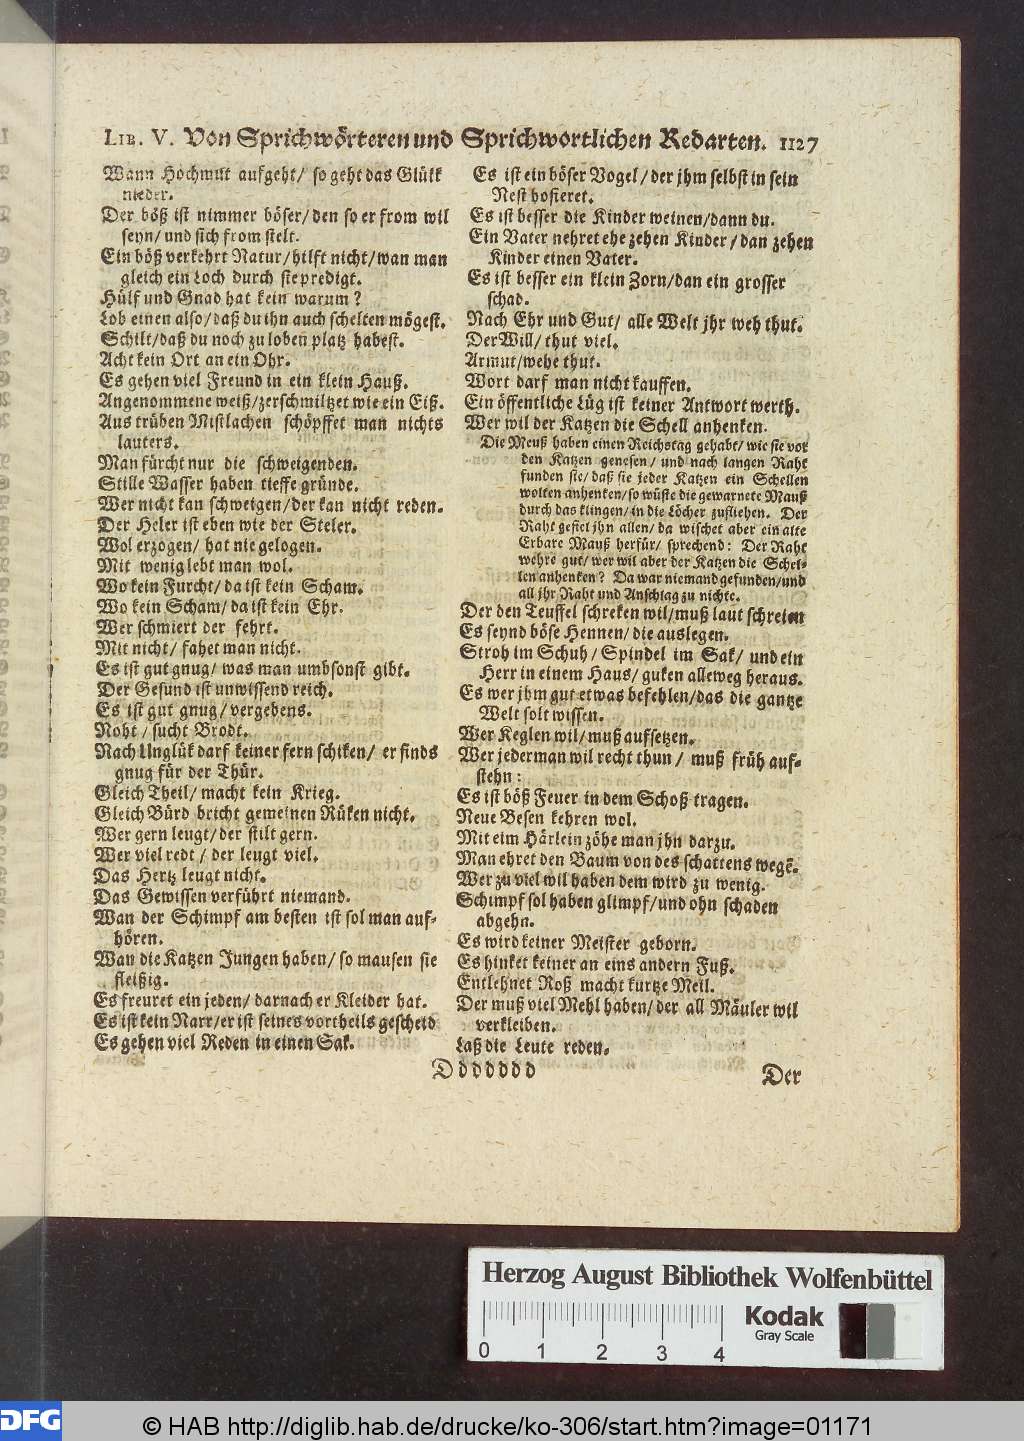 LIB. V. Von Sprichwörteren und Sprichwortlichen Redarten. 1127
Wann Hochmut aufgeht/ so geht das Glükk
nieder.
Der böß ist nimmer böser/den so er from wil
seyn/und sich from stelt.
Ein böß verkehrt Natur/hilft nicht/wan man
gleich ein Loch durch sie predigt.
Hülf und Gnad hat kein warum?
Lob einen also/daß du ihn auch schelten mögest.
Schilt/daß du noch zu loben platz habest.
Acht kein Ort an ein Ohr.
Es gehen viel Freund in ein klein Hauß.
Angenommene weiß/zerschmiltzet wie ein Eiß.
Aus trüben Mistlachen schöpffet man nichts
lauters.
Man fürcht nur die schweigenden.
Stille Wasser haben tieffe gründe.
Wer nicht kan schweigen/der kan nicht reden.
Der Heler ist eben wie der Steler.
Wol erzogen/ hat nie gelogen.
Mit wenig lebt man wol.
Wo kein Furcht/da ist kein Scham.
Wo kein Scham/da ist kein Ehr.
Wer schmiert der fehrt.
Mit nicht/ fahet man nicht.
Es ist gut gnug/ was man umbsonst gibt.
Der Gesund ist unwissend reich.
Es ist gut gnug/vergebens.
Noht/sucht Brodt.
Nach Unglük darf keiner fern schiken/ er finds
gnug für der Thür.
Gleich Theil/ macht kein Krieg.
Gleich Bürd bricht gemeinen Rüken nicht.
Wer gern leugt/der stilt gern.
Wer viel redt/ der leugt viel.
Das Hertz leugt nicht.
Das Gewissen verführt niemand.
Wan der Schimpf am besten ist sol man auf-
hören.
Wan die Katzen Jungen haben/ so mausen sie
fleißig.
Es freuret ein jeden/ darnach er Kleider hat.
Es ist kein Narr/er ist seines vortheils gescheid
Es gehen viel Reden in einen Sak.
Es ist ein böser Vogel/der jhm selbst in sein
Nest hofieret.
Es ist besser die Kinder weinen/dann du.
Ein Vater nehret ehe zehen Kinder/dan zehen
Kinder einen Vater.
Es ist besser ein klein Zorn/dan ein grosser
schad.
Nach Ehr und Gut/ alle Welt jhr weh thut.
Der Will/ thut viel.
Armut/wehe thut.
Wort darf man nicht kauffen.
Ein öffentliche Lüg ist keiner Antwort werth.
Wer wil der Katzen die Schell anhenken.
Die Meuß haben einen Reichstag gehabt/ wie sie vor
den Katzen genesen/ und nach langen Raht
funden sie/daß sie jeder Katzen ein Schellen
wolten anhenken/so wüste die gewarnete Mauß
durch das klingen/in die Löcher zufliehen. Der
Raht gefiel jhn allen/da wischet aber ein alte
Erbare Mauß herfür/ sprechend: Der Raht
wehre gut/wer wil aber der Katzen die Schel-
len anhenken? Da war niemand gefunden/und
all jhr Raht und Anschlag zu nichte.
Der den Teuffel schreken wil/muß laut schreien
Es seynd böse Hennen/die auslegen.
Stroh im Schuh/Spindel im Sak/ und ein
Herr in einem Haus/guken alleweg heraus.
Es wer jhm gut etwas befehlen/das die gantze
Welt solt wissen.
Wer Keglen wil/muß aufsetzen.
Wer jederman wil recht thun/ muß früh auf-
stehn:
Es ist böß Feuer in dem Schoß tragen.
Neue Besen kehren wol.
Mit eim Härlein zöhe man jhn darzu.
Man ehret den Baum von des schattens wegē.
Wer zu viel wil haben dem wird zu wenig.
Schimpf sol haben glimpf/und ohn schaden
abgehn.
Es wird keiner Meister geborn.
Es hinket keiner an eins andern Fuß.
Entlehnet Roß macht kurtze Meil.
Der muß viel Mehl haben/der all Mäuler wil
verkleiben.
Laß die Leute reden.
Ddddddd
Der
Herzog August Bibliothek Wolfenbüttel
0 1 2 3 4
Kodak
Gray Scale
DFG
© HAB http://diglib.hab.de/drucke/ko-306/start.htm?image=01171